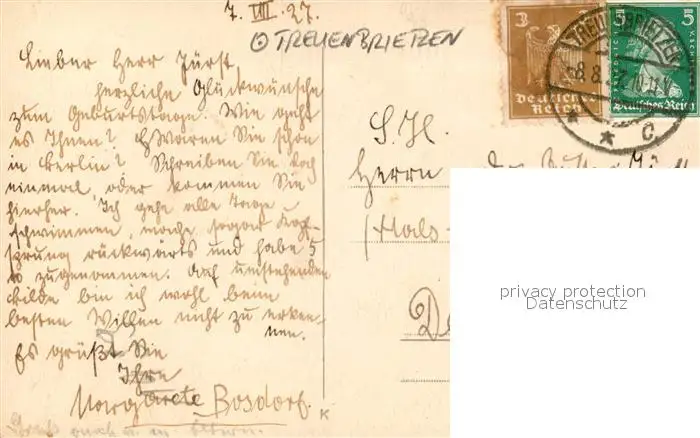 7. VIII. 27.
⊙ TREUENBRIETZEN
Lieber Herr Fürst,
herzliche Glückwünsche
zum Geburtstage. Wie geht
es Ihnen? Waren Sie schon
in Berlin? Schreiben Sie doch
einmal oder kommen Sie
hierher. Ich gehe alle Tage
schwimmen, mache sogar Kopf-
sprung rückwärts und habe 5
zugenommen. Auf umstehenden
Bilde bin ich wohl beim
besten Willen nicht zu erken-
nen.
Es grüßt Sie
Ihre
Margarete Bosdorf.
K
Gruß auch a. m. Eltern.
3
Deutsches
Reich
5
Deutsches Reich
TREUENBRIETZEN
8.8.27. 10-11
* * C
S. H.
Herrn
privacy protection
Datenschutz